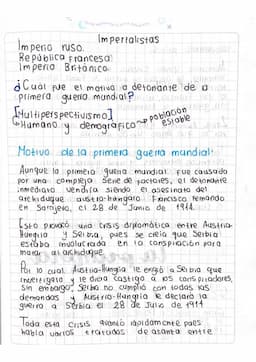 Imperialistas
Imperio ruso.
República francesa
Imperio Británico.
¿Cuál fue el motivo o detonante de la
primera guerra mundial?
[Multiperspectivismo]
↳Humano y demográfico→población
estable
Motivo de la primera guerra mundial:
Aunque la primera guerra mundial fue causada
por una compleja serie de factores, el detonante
inmediato vendría siendo el asesinato del
archiduque austro-húngaro Francisco Fernando
en Sarajevo, el 28 de Junio de 1914.
Esto provocó una crisis diplomática entre Austria-
Hungría y Serbia, pues se creía que Serbia
estaba involucrada en la conspiración para
matar al archiduque.
Por lo cual Austria-Hungría le exigió a Serbia que
investigara y le diera castigo a los conspiradores,
sin embargo, Serbia no cumplió con todas las
demandas y Austria-Hungría le declaró la
guerra a Serbia el 28 de Julio de 1914
Toda esta crisis avanzó rápidamente pues
había varios tratados de alianza entre